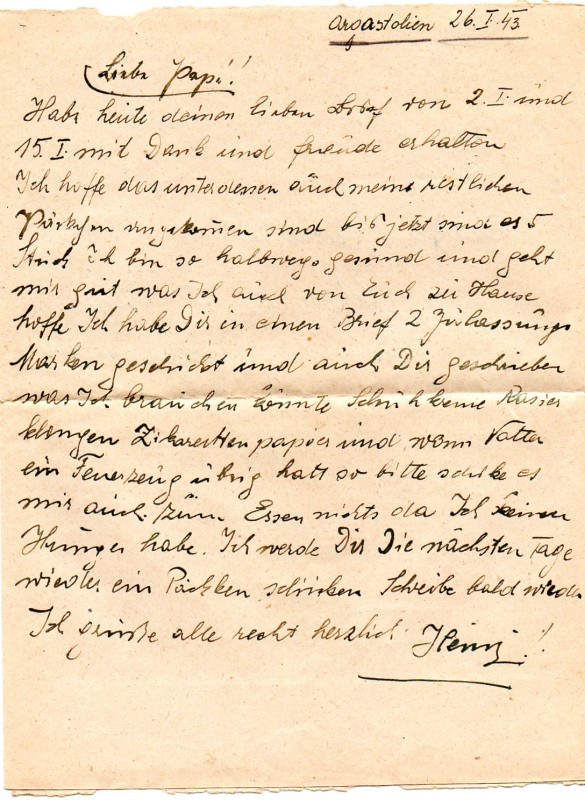 Argastolien 26.I.43
Liebe Papi!
Habe heute deinen lieben Brief von 2.I. und
15.I. mit Dank und freude erhalten
Ich hoffe das unterdessen auch meine restlichen
Päckchen angekommen sind bis jetzt sind es 5
Stück Ich bin so halbwegs gesund und geht
mir gut was Ich auch von Euch zu Hause
hoffe Ich habe Dir in einen Brief 2 Zulassungs
Marken geschickt und auch Dir geschrieben
was Ich brauchen könnte Rasier
klingen Zikaretten papier und wenn Vatter
ein Feuerzeug übrig hatt so bitte schike es
mir auch. Zum Essen nichts da Ich keinen
Hunger habe. Ich werde Dir Die nächsten Tage
wieder ein Päckken schicken Schreibe bald wieder
Ich grüße alle recht herzlich Heini!